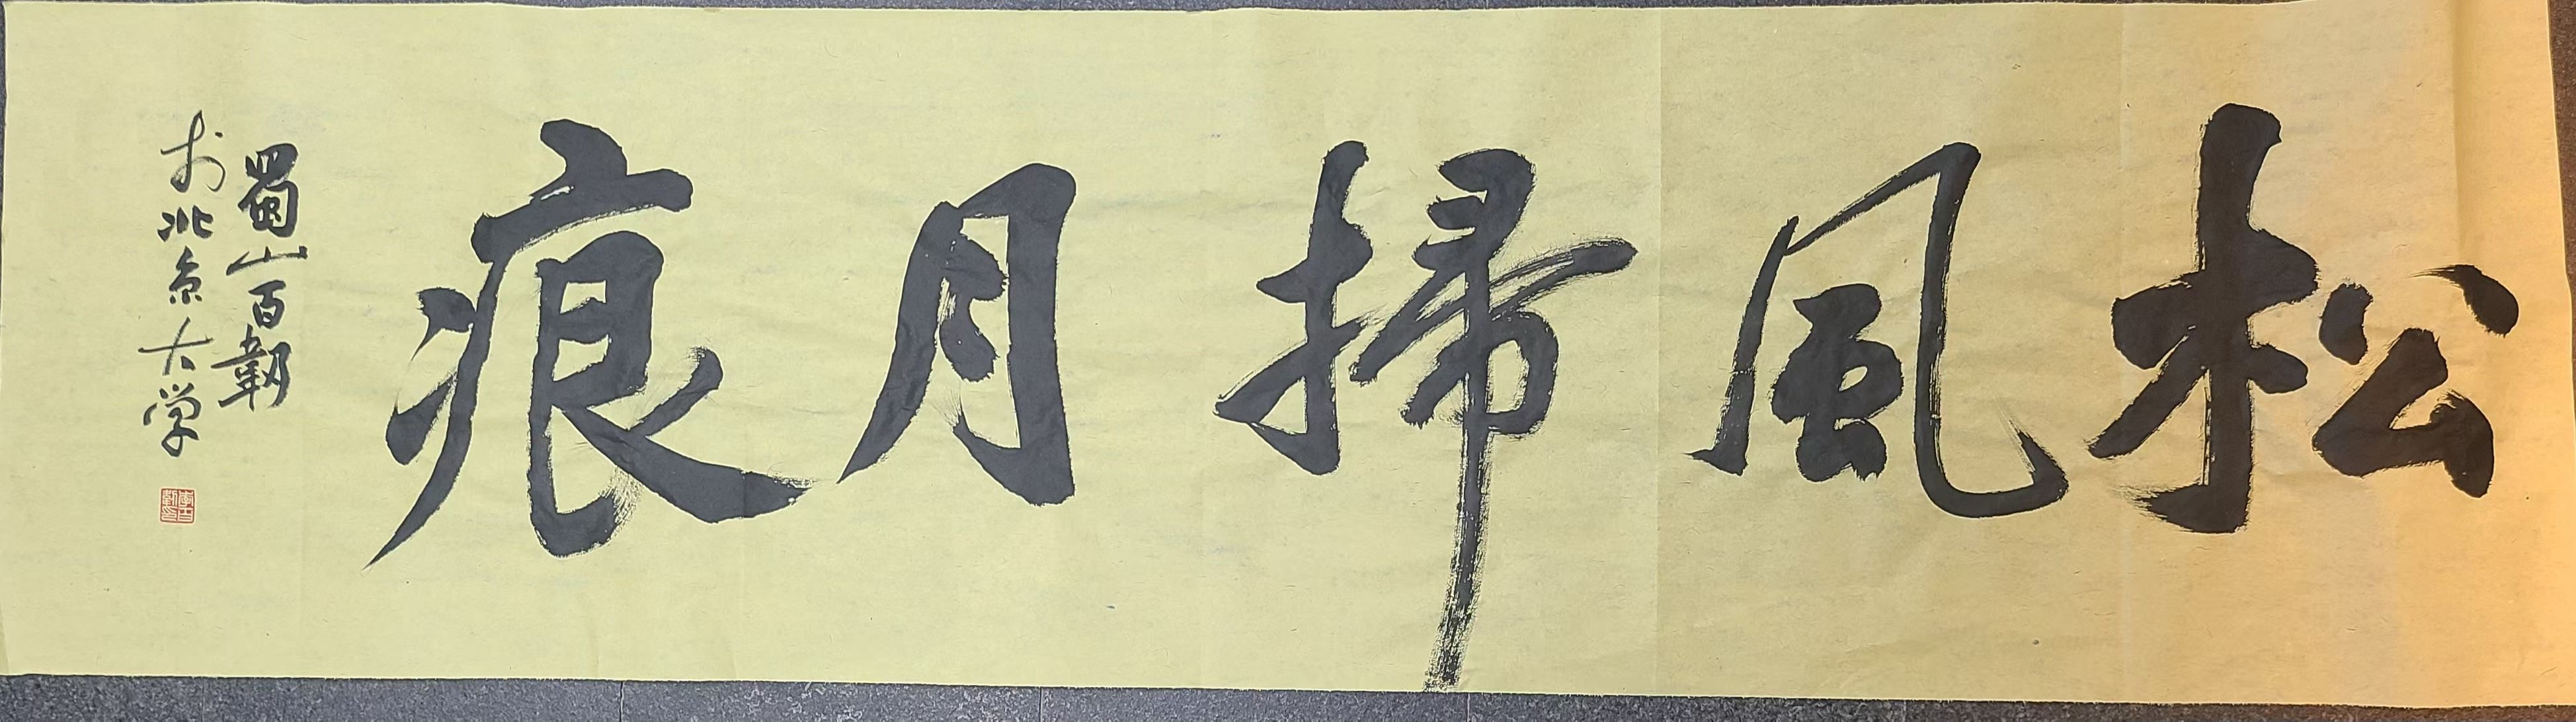 松風掃月痕
蜀山百韌
於北京大学